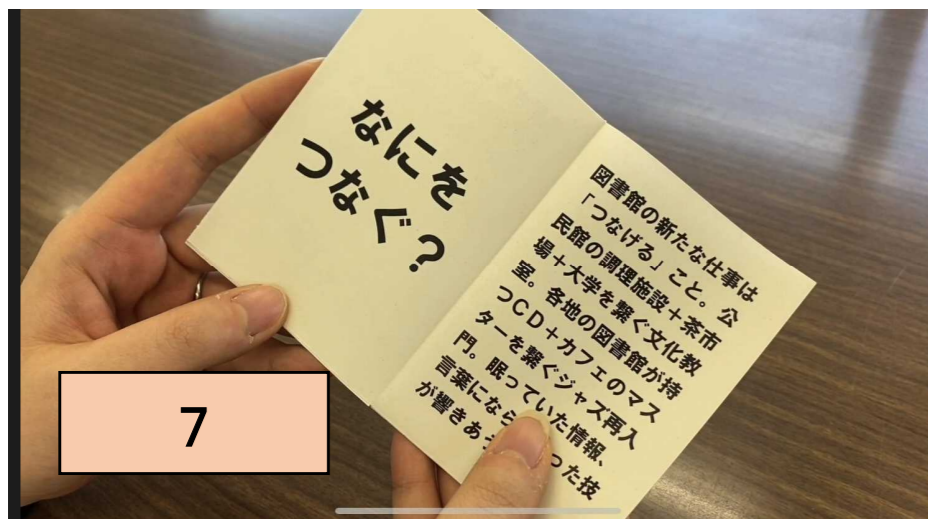 なにを
つなぐ？
図書館の新たな仕事は
「つなげる」こと。公
民館の調理施設＋茶市
場＋大学を繋ぐ文化教
室。各地の図書館が持
つＣＤ＋カフェのマス
ターを繋ぐジャズ再入
門。眠っていた情報、
言葉になら った技
が響きあ
7